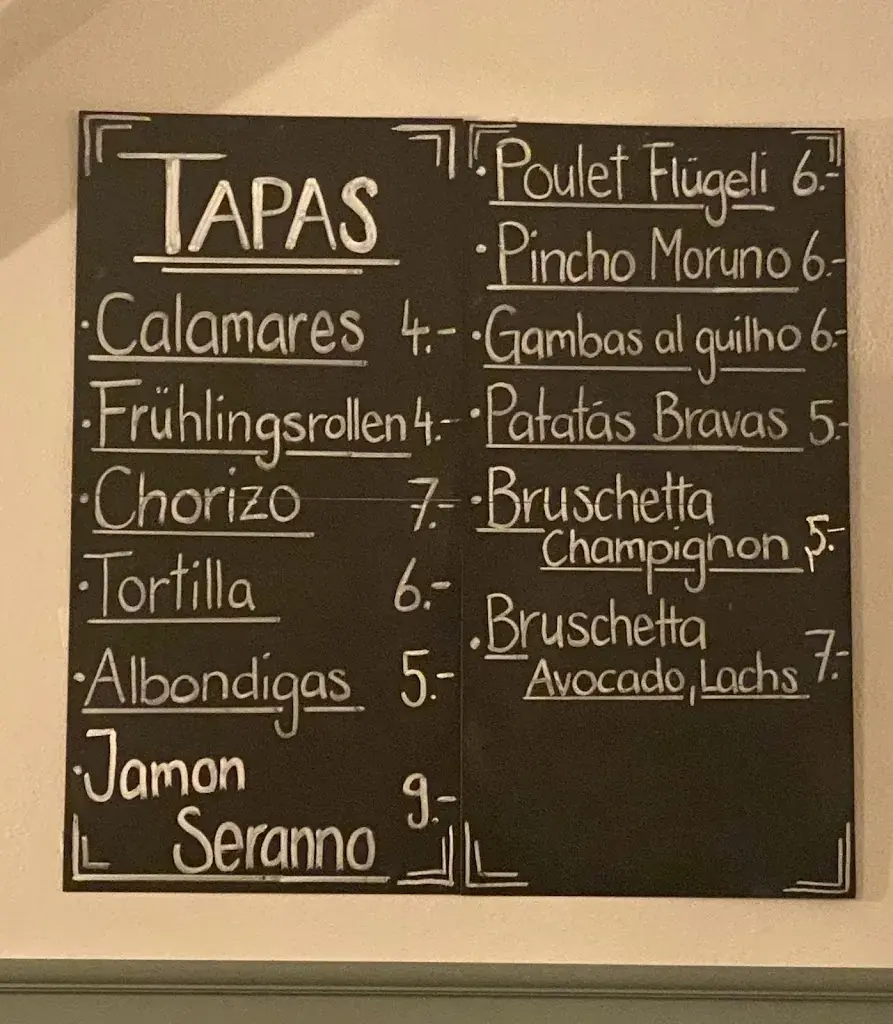 TAPAS
·Calamares 4.-
·Frühlingsrollen 4.-
·Chorizo 7.-
·Tortilla 6.-
·Albondigas 5.-
·Jamon
Seranno 9.-
·Poulet Flügeli 6.-
·Pincho Moruno 6.-
·Gambas al guilho 6.-
·Patatás Bravas 5.-
·Bruschetta
Champignon 5.-
·Bruschetta
Avocado, Lachs 7.-